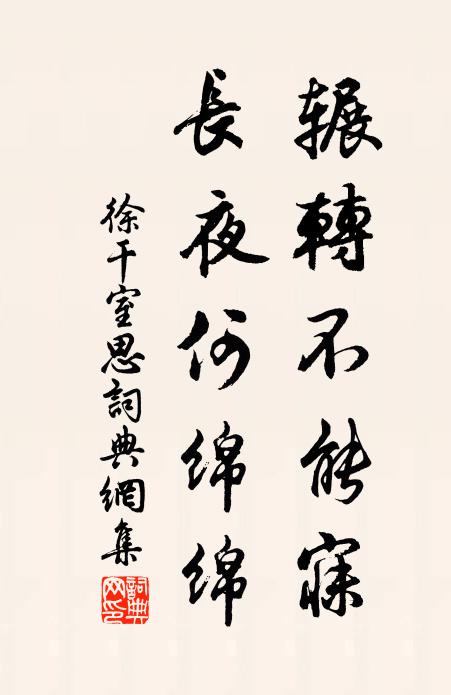 辗轉不能寐
長夜何绵绵
徐干室思詞典網集
詞典网印